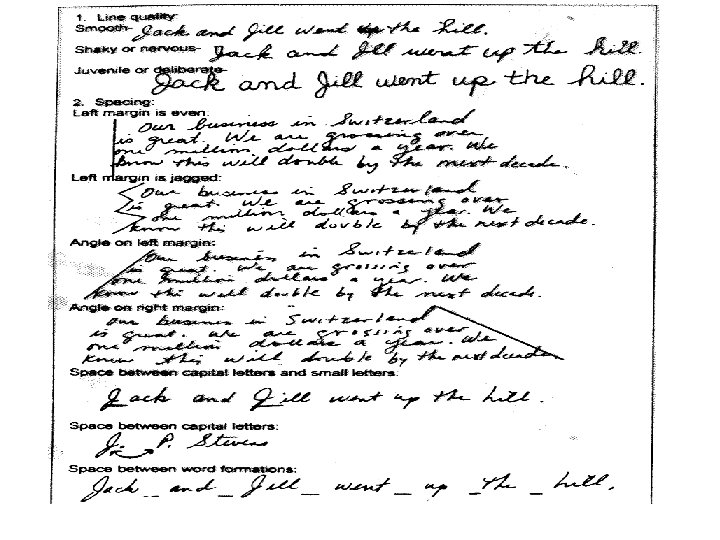 1. Line quality:
Smooth- Jack and Jill went up the hill.
Shaky or nervous- Jack and Jill went up the hill.
Juvenile or deliberate- Jack and Jill went up the hill.
2. Spacing:
Left margin is even:
Our business in Switzerland
is great. We are grossing over
one million dollars a year. We
know this will double by the next decade.
Left margin is jagged:
Our business in Switzerland
is great. We are grossing over
one million dollars a year. We
know this will double by the next decade.
Angle on left margin:
Our business in Switzerland
is great. We are grossing over
one million dollars a year. We
know this will double by the next decade.
Angle on right margin:
Our business in Switzerland
is great. We are grossing over
one million dollars a year. We
know this will double by the next decade
Space between capital letters and small letters:
Jack and Jill went up the hill.
Space between capital letters:
J. P. Stevens
Space between word formations:
Jack _ and _ Jill _ went _ up _ the _ hill.